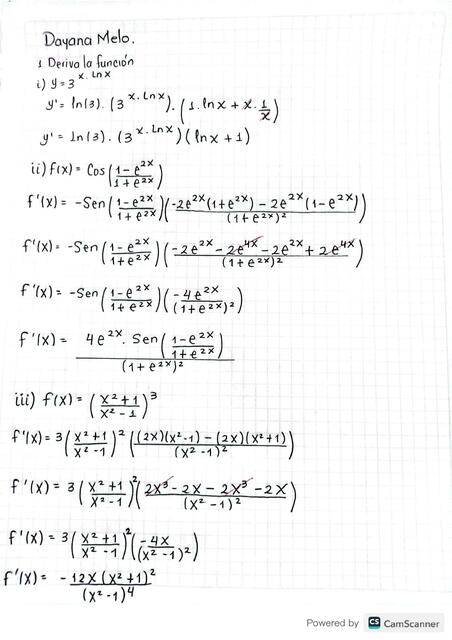 Dayana Melo.
1 Deriva la función
i) y = 3^{x . Ln x}
y' = ln(3) . (3^{x . Lnx}) . (1 . lnx + x . 1/x)
y' = Ln(3) . (3^{x . Lnx})(lnx + 1)
ii) f(x) = Cos((1-e^{2x})/(1+e^{2x}))
f'(x) = -Sen((1-e^{2x})/(1+e^{2x}))((-2e^{2x}(1+e^{2x}) - 2e^{2x}(1-e^{2x}))/(1+e^{2x})²)
f'(x) = -Sen((1-e^{2x})/(1+e^{2x}))((-2e^{2x} - 2e^{4x} - 2e^{2x} + 2e^{4x})/(1+e^{2x})²)
f'(x) = -Sen((1-e^{2x})/(1+e^{2x}))(-4e^{2x}/(1+e^{2x})²)
f'(x) = 4e^{2x} . Sen((1-e^{2x})/(1+e^{2x}))/(1+e^{2x})²
iii) f(x) = ((x²+1)/(x²-1))³
f'(x) = 3((x²+1)/(x²-1))²(((2x)(x²-1) - (2x)(x²+1))/(x²-1)²)
f'(x) = 3((x²+1)/(x²-1))²((2x³ - 2x - 2x³ - 2x)/(x²-1)²)
f'(x) = 3((x²+1)/(x²-1))²(-4x/(x²-1)²)
f'(x) = -12x(x²+1)²/(x²-1)⁴
Powered by CS CamScanner